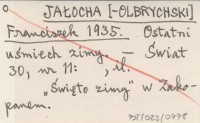 o JAŁOCHA [-OLBRYCHSKI]
Franciszek 1935. Ostatni
uśmiech zimy. — Świat
30, nr 11: , il.
„Święto zimy" w Zako-
panem.